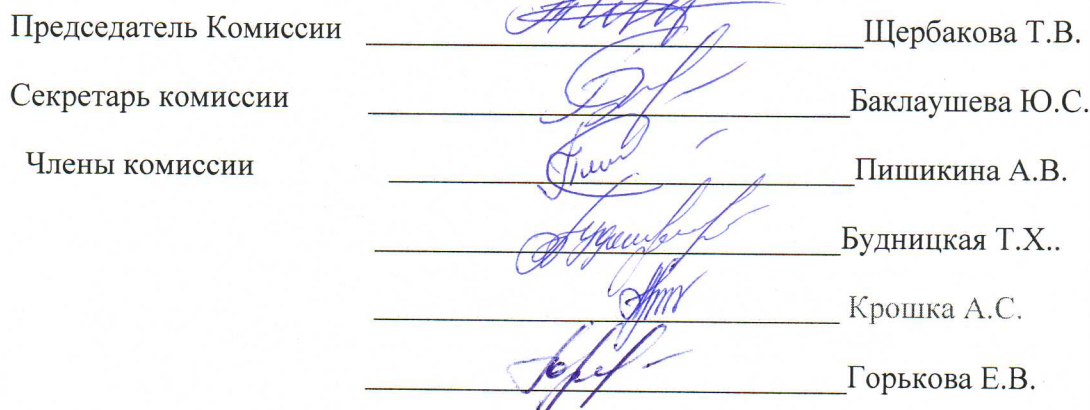 Председатель Комиссии Щербакова Т.В.
Секретарь комиссии Баклаушева Ю.С.
Члены комиссии Пишикина А.В.
Будницкая Т.Х..
Крошка А.С.
Горькова Е.В.